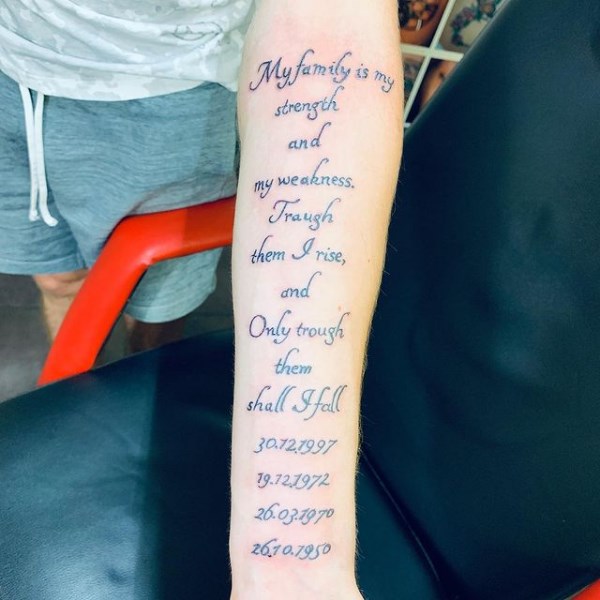 My family is my
strength
and
my weakness.
Traugh
them I rise,
and
Only trough
them
shall I fall
30.12.1997
19.12.1972
26.03.1970
26.10.1950